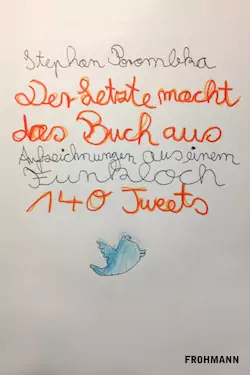 Stephan Porombka
Der Letzte macht
das Buch aus
Aufzeichnungen aus einem
Funkloch
140 Tweets
FROHMANN